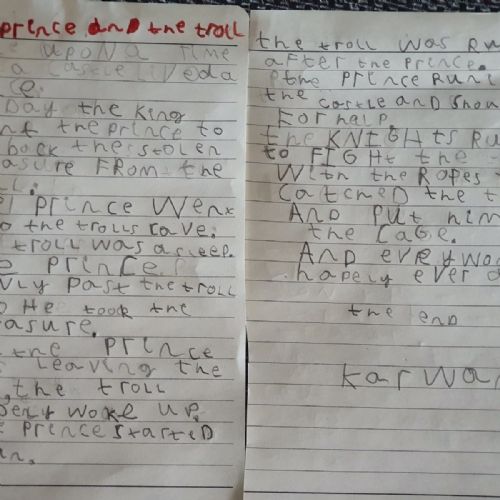 prince and the troll
upon a Time
a castle Lived a
Day the King
the prince to
back the stolen
asure FROM the
prince Went
o the trolls cave.
troll was asleep.
prince
past the troll
He took the
asure.
the prince
Leaving the
the troll
woke up.
prince started
the troll was Run
after the prince.
the prince Run
the castle and shou
For halp.
the KNIGHTS Ru
to FIGHt the
With the Ropes
Catched the t
And put him
the Cage.
And
hapely ever a
the end
Karwa